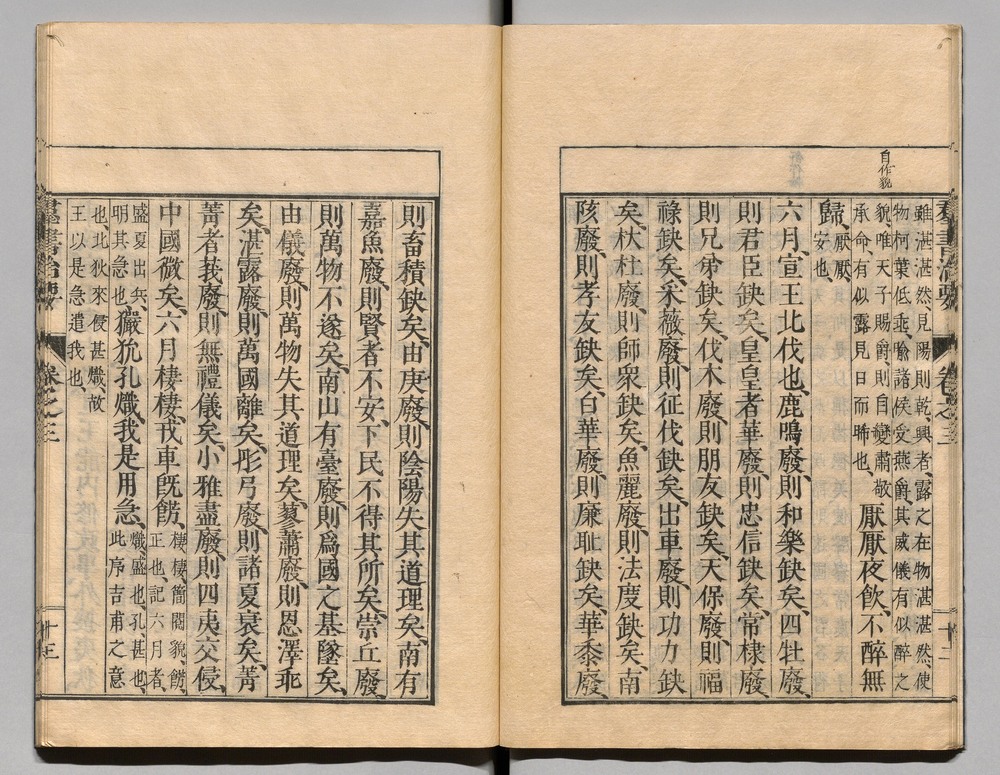 自作貌
羣書治要 卷之三 十二
雖湛湛然、見陽則乾、興者、露之在物湛湛然、使
物柯葉低垂、喻諸侯受燕爵、其威儀有似醉之
貌、唯天子賜爵、則自變肅敬
承命、有似露見日而晞也、
厭厭夜飲、不醉無
歸、厭厭、
安也、
六月、宣王北伐也、鹿鳴廢、則和樂缺矣、四牡廢、
則君臣缺矣、皇皇者華廢、則忠信缺矣、常棣廢、
則兄弟缺矣、伐木廢、則朋友缺矣、天保廢、則福
祿缺矣、采薇廢、則征伐缺矣、出車廢、則功力缺
矣、杕杜廢、則師衆缺矣、魚麗廢、則法度缺矣、南
陔廢、則孝友缺矣、白華廢、則廉耻缺矣、華黍廢、
則畜積缺矣、由庚廢、則陰陽失其道理矣、南有
嘉魚廢、則賢者不安、下民不得其所矣、崇丘廢、
則萬物不遂矣、南山有臺廢、則爲國之基墜矣、
由儀廢、則萬物失其道理矣、蓼蕭廢、則恩澤乖
矣、湛露廢、則萬國離矣、彤弓廢、則諸夏衰矣、菁
菁者莪廢、則無禮儀矣、小雅盡廢、則四夷交侵、
中國微矣、六月棲棲、戎車既飭、
棲棲、簡閱貌、飭、
正也、記六月者、
盛夏出兵、
明其急也、
玁狁孔熾、我是用急、
熾、盛也、孔、甚也、
此序吉甫之意
也、北狄來侵甚熾、故
王以是急遣我也、
羣書治要 卷之三 十三